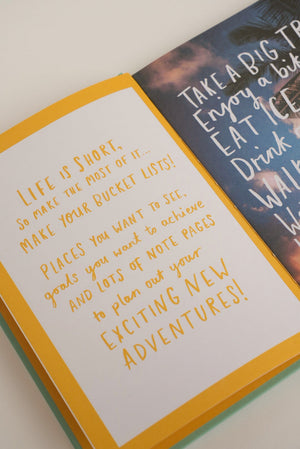 LIFE IS SHORT,
SO MAKE THE MOST OF IT...
MAKE YOUR BUCKET LISTS!
PLACES YOU WANT TO SEE,
goals you want to achieve
AND LOTS OF NOTE PAGES
to plan out your
EXCITING NEW
ADVENTURES!
TAKE A BIG
Enjoy a
EAT ICE
Drink